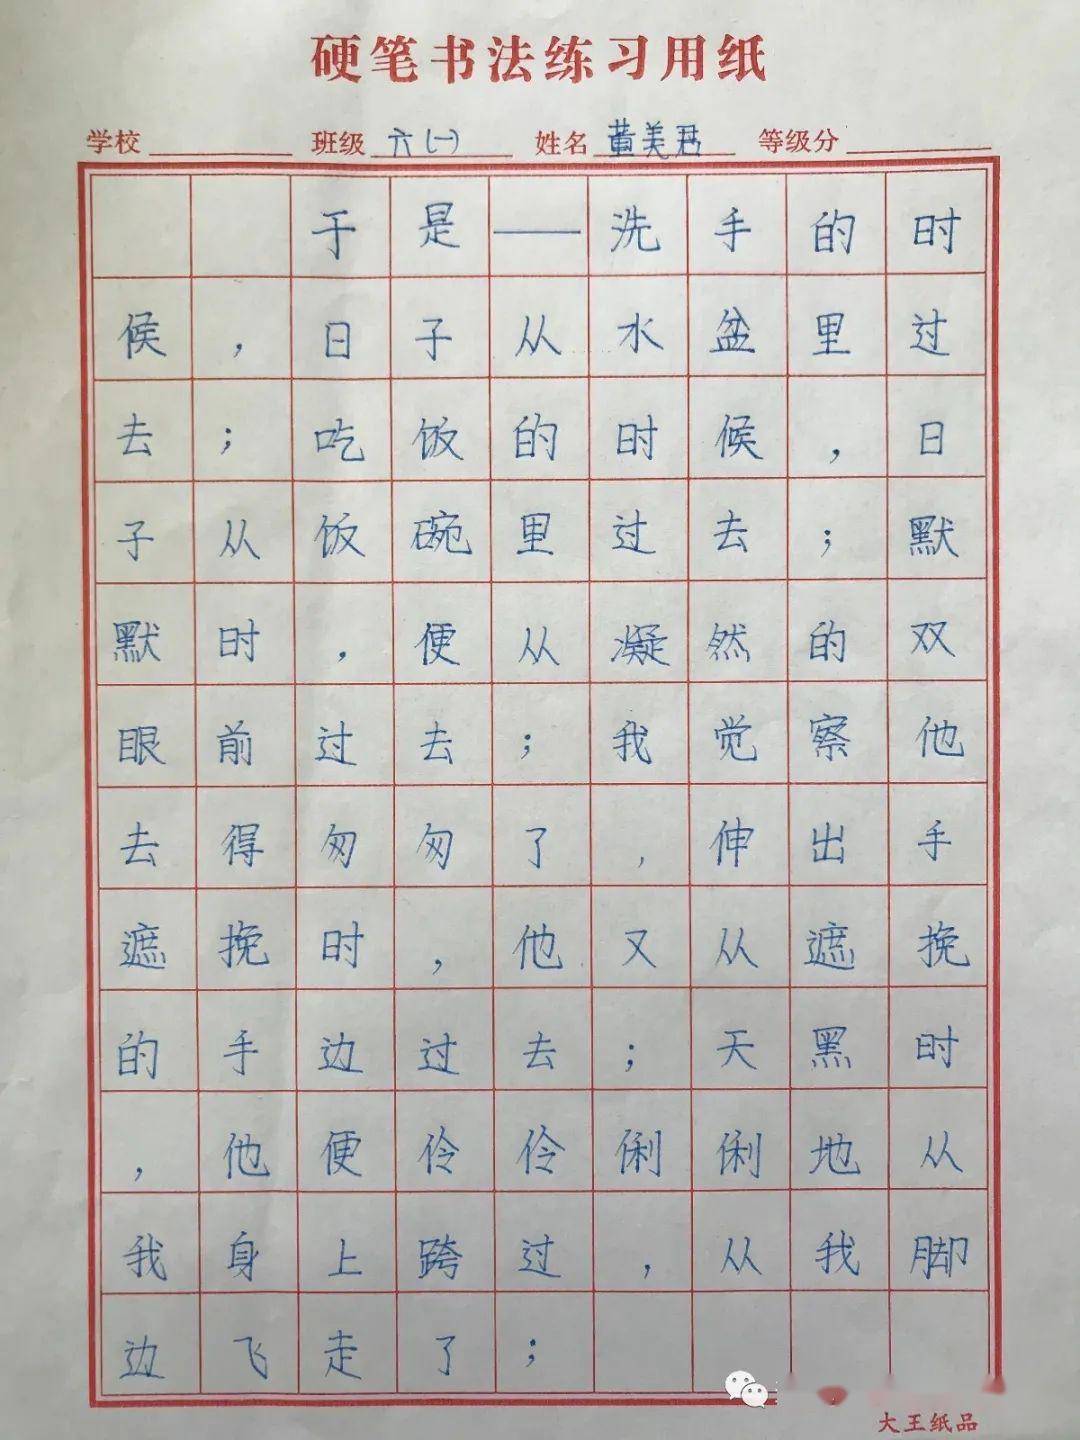 硬笔书法练习用纸
学校 班级 六(一) 姓名 董美君 等级分
于是——洗手的时
候，日子从水盆里过
去；吃饭的时候，日
子从饭碗里过去；默
默时，便从凝然的双
眼前过去；我觉察他
去得匆匆了，伸出手
遮挽时，他又从遮挽
的手边过去；天黑时
，他便伶伶俐俐地从
我身上跨过，从我脚
边飞走了；
大王纸品